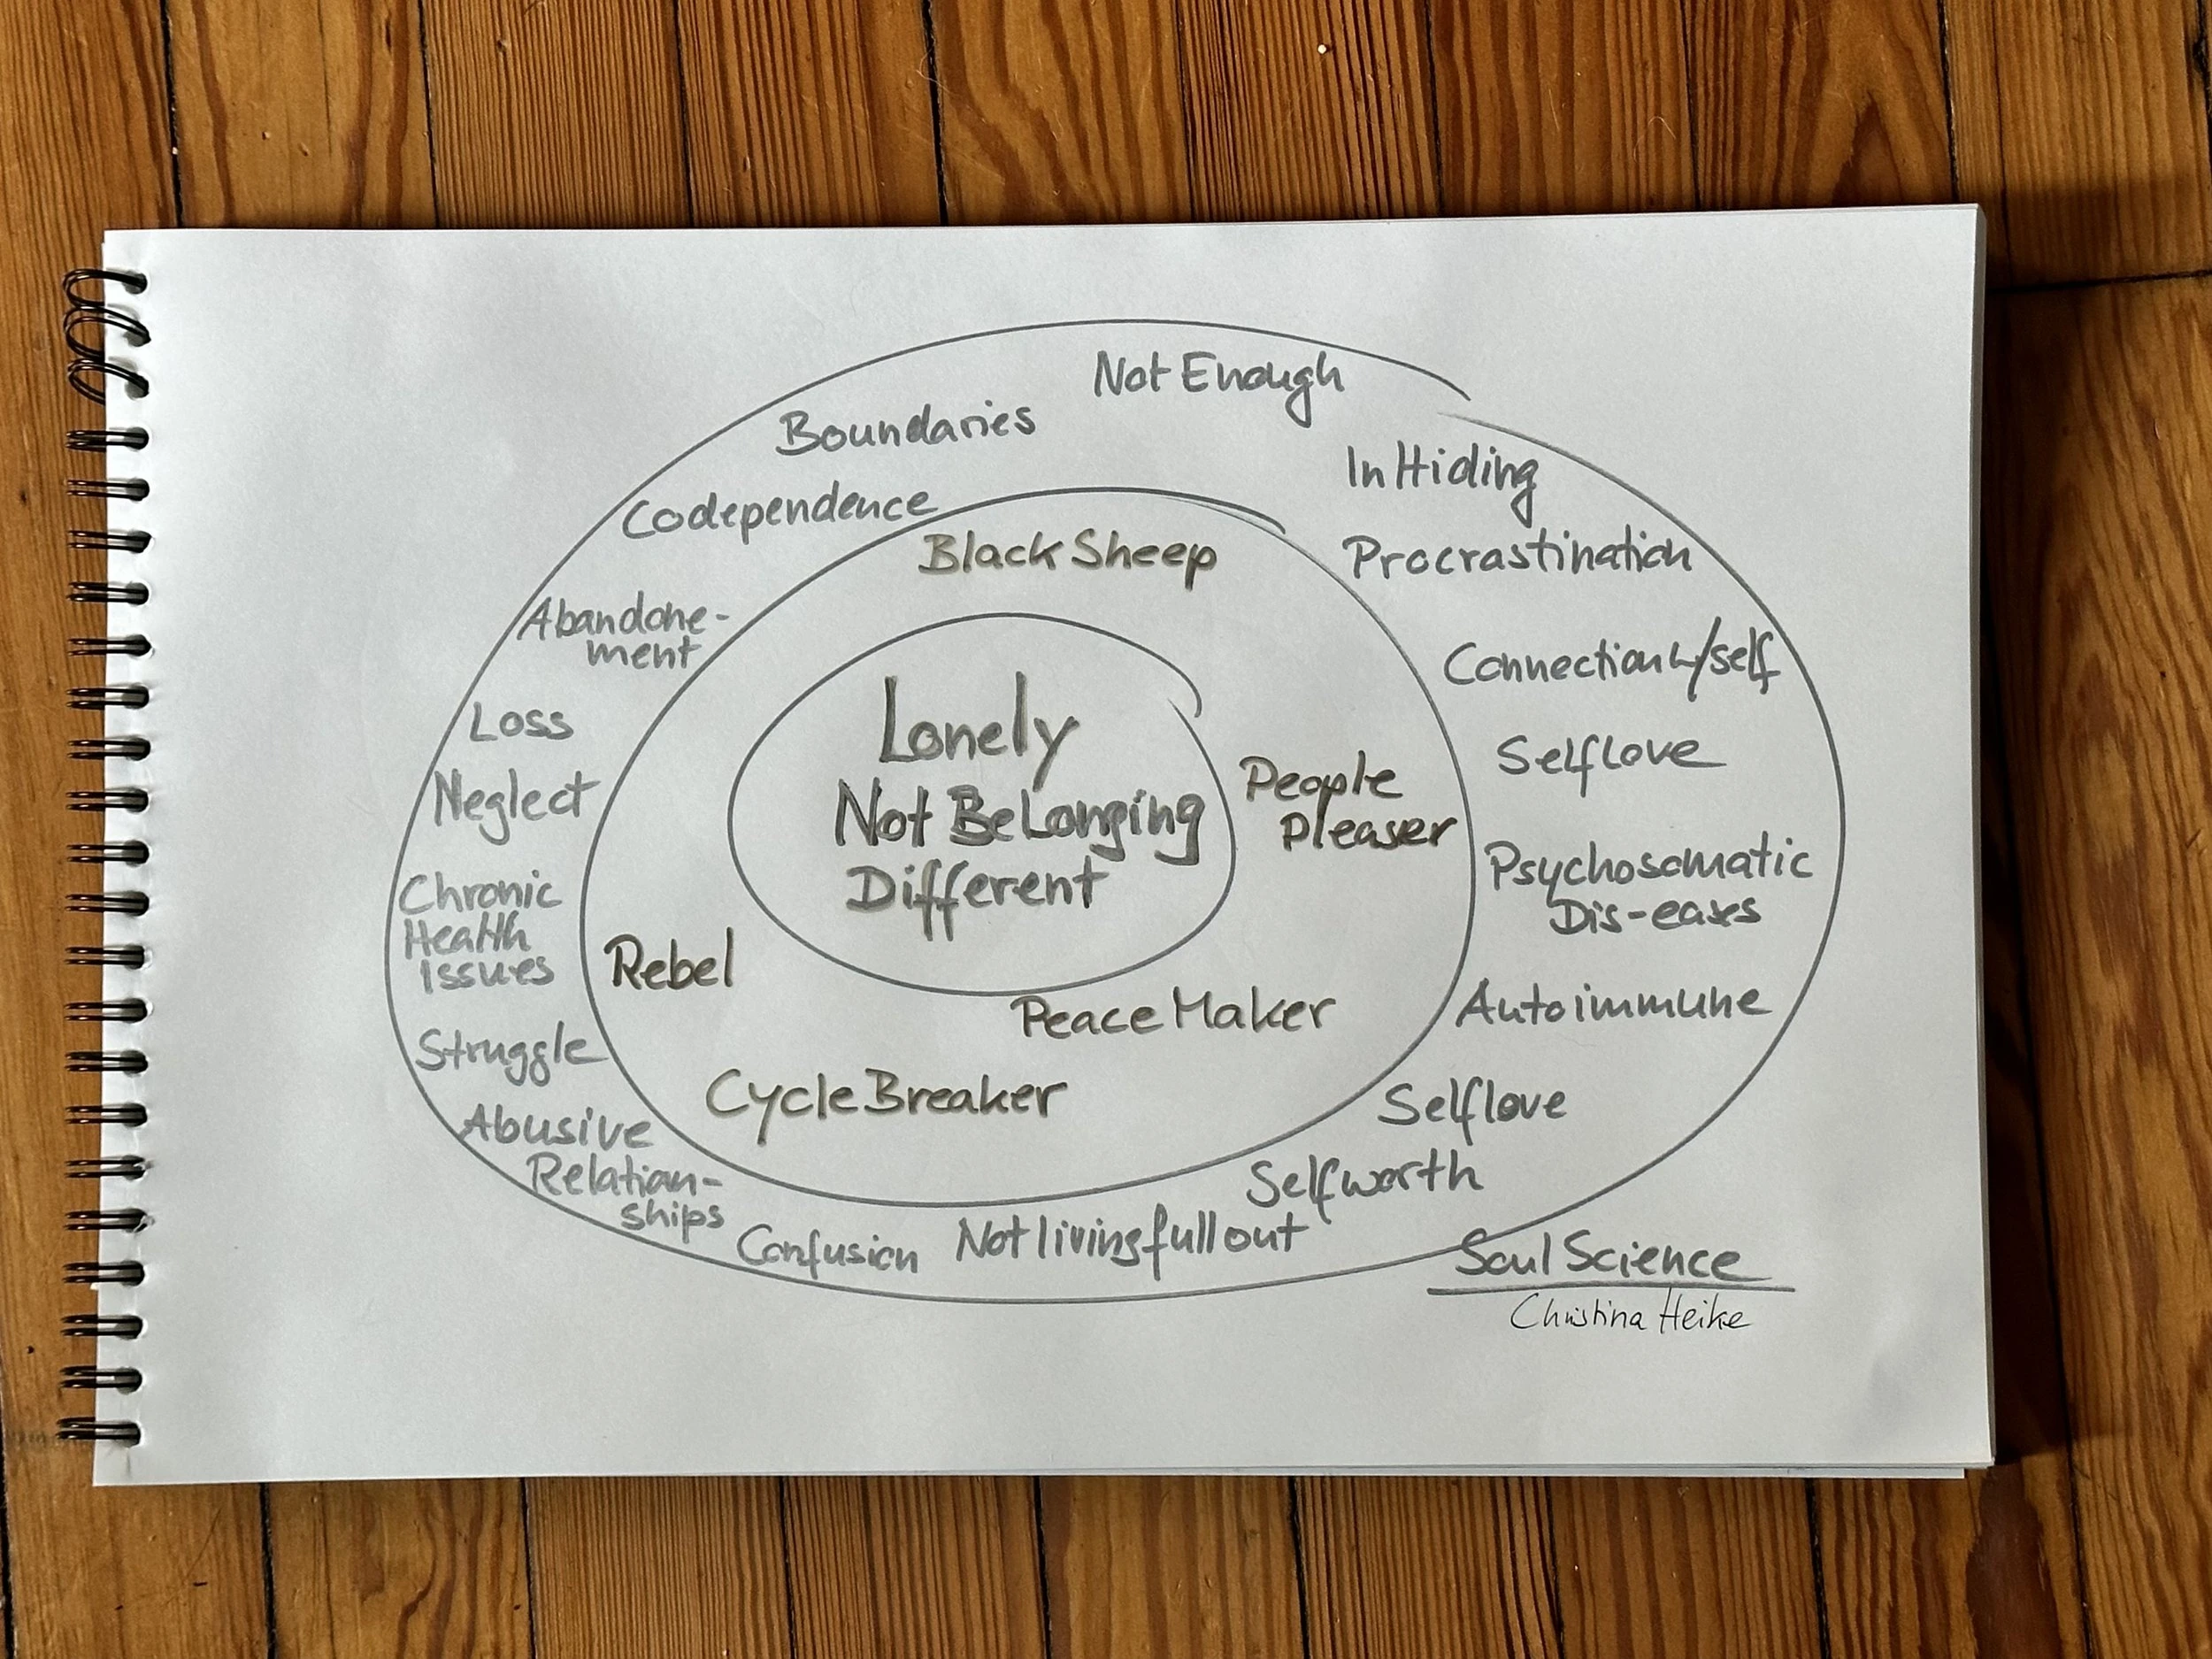 Not Enough
Boundaries
In Hiding
Codependence
Procrastination
Black Sheep
Abandone-
ment
Connection w/self
Loss
Lonely
Selflove
Neglect
Not Belonging
People
Pleaser
Different
Psychosomatic
Dis-eases
Chronic
Health
Issues
Rebel
Autoimmune
Peace Maker
Struggle
Cycle Breaker
Selflove
Abusive
Relation-
ships
Selfworth
Confusion
Not living full out
Soul Science
Christina Heike